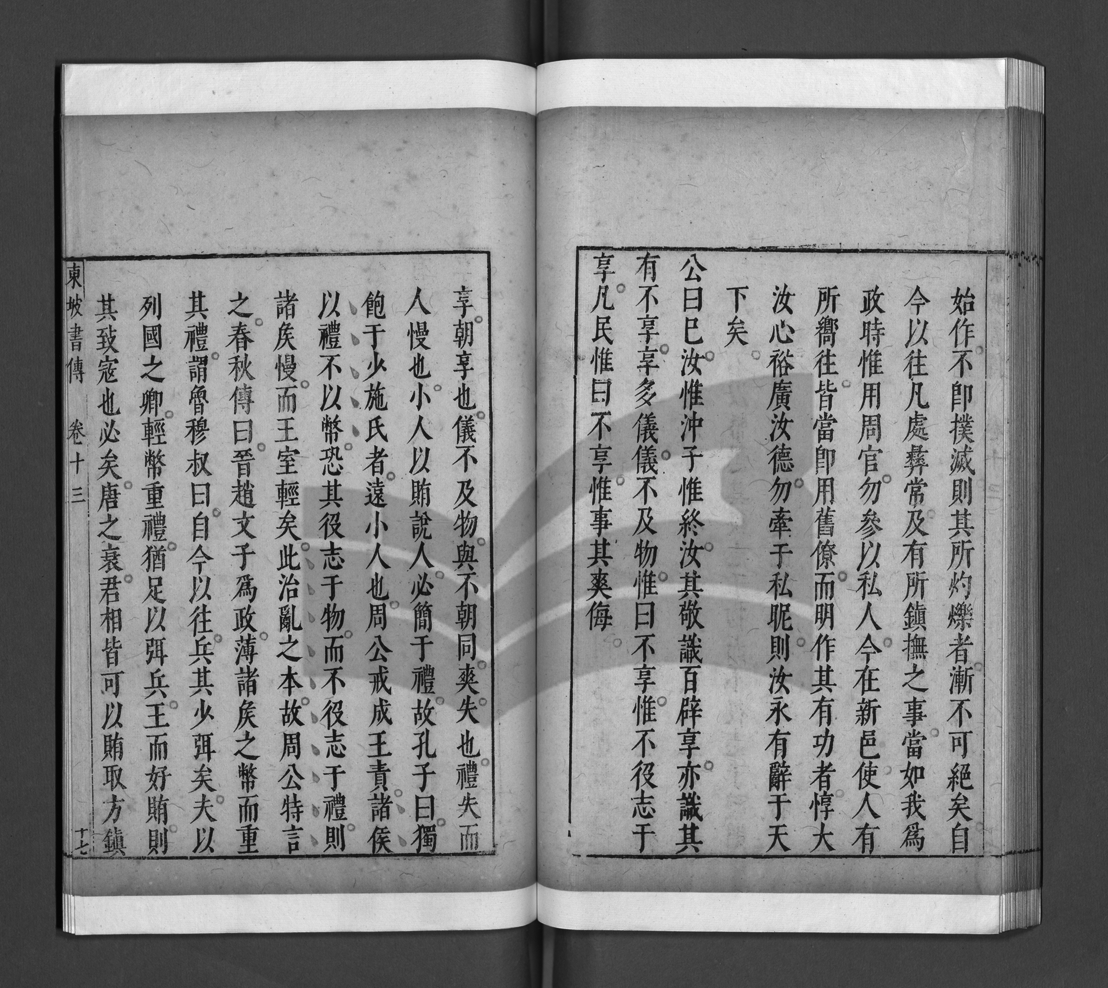 始作不卽撲滅則其所灼爍者漸不可絕矣自
今以往凡處彝常及有所鎮撫之事當如我爲
政時惟用周官勿參以私人今在新邑使人有
所嚮往皆當卽用舊僚而明作其有功者惇大
汝心裕廣汝德勿牽于私昵則汝永有辭于天
下矣
公曰巳汝惟沖子惟終汝其敬識百辟享亦識其
有不享享多儀儀不及物惟曰不享惟不役志于
享凡民惟曰不享惟事其爽侮
享朝享也儀不及物與不朝同爽失也禮失而
人慢也小人以賄說人必簡于禮故孔子曰獨
飽于少施氏者遠小人也周公戒成王責諸侯
以禮不以幣恐其役志于物而不役志于禮則
諸矦慢而王室輕矣此治亂之本故周公特言
之春秋傳曰晉趙文子爲政薄諸矦之幣而重
其禮謂魯穆叔曰自今以往兵其少弭矣夫以
列國之卿輕幣重禮猶足以弭兵王而好賄則
其致寇也必矣唐之衰君相皆可以賄取方鎮
東坡書傳 卷十三 十七